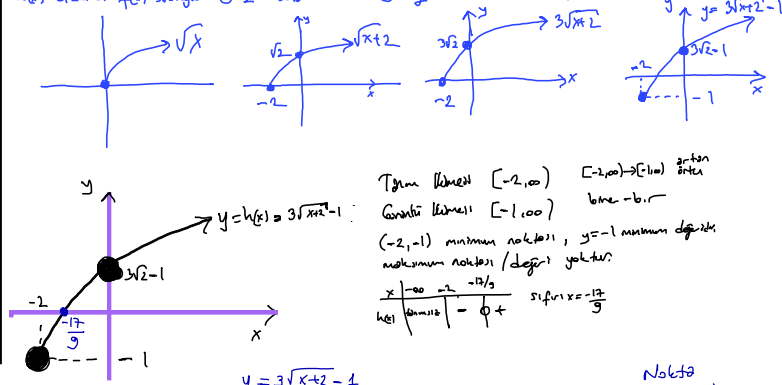 y
y = 3√x+2 - 1
√x
√2
√x+2
-2
x
y
3√2
3√x+2
-2
x
y
-2
3√2-1
-1
x
y
y = h(x) = 3√x+2 - 1 :
3√2-1
-2
-17/9
x
-1
Tanım kümesi [-2,∞)
[-2,∞)→[-1,∞) artan
örten
Görüntü kümesi [-1,∞)
bire-bir
(-2,-1) minimum noktası, y=-1 minimum değeridir.
maksimum noktası / değeri yoktur.
x -∞ -2 -17/9
h(x) tanımsız - 0 +
sıfırı x = -17/9
y = 3√x+2 - 1
Nokta